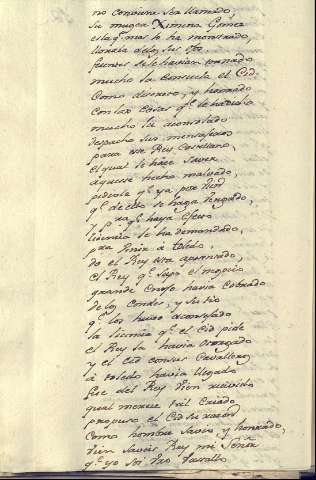 no conviene ser llamado,
Su muger Ximena Gomez
esta q.e mas lo ha mostrado,
llorara delos sus ojos
fuentes se le havian tornado
mucho la Consuela el Cid.
Como discreto, y honrado
con las cosas q.e le ha dicho
mucho la aconsolado
despacho sus mensageros
para ese Rey Castellano,
el qual le hace saver
aqueste hecho malvado,
pidiole q.e ya por Dios
q.e de ello se haga vengado,
y pa q.e haya efecto
licencia le ha demandado,
pra venir á toledo,
do el Rey esta aposentado,
el Rey q.e supo el negocio
grande Enojo havia cobrado
de los Condes, y su tio
q.e los huvo aconsejado
la licencia q.e el Cid pide
el Rey la havia otorgado
y el Cid con sus Cavalleros
á toledo havia llegado
fue del Rey vien recivido
qual merece tal Criado
propuso el Cid su razon
como hombre savio y honrado,
vien saveis Rey mi Señor
q.e yo soi vro Vasallo